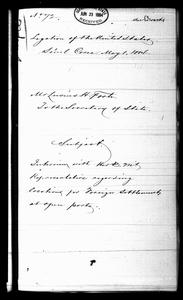 No 72.
JUN 23 1884
RECEIVED
Legation of the United States
Séoul Corea May 1, 1884
Mr Lucius H. Foote
To the Secretary of State.
Subject
Interview with
Representative regarding
locations for Foreign Settlements
at open ports.